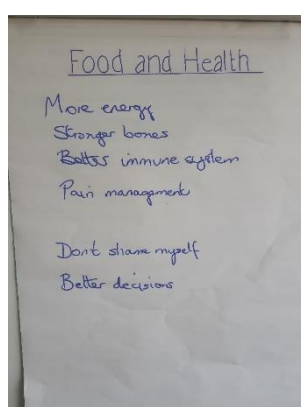 Food and Health
More energy
Stronger bones
Better immune system
Pain management
Don't shame myself
Better decisions